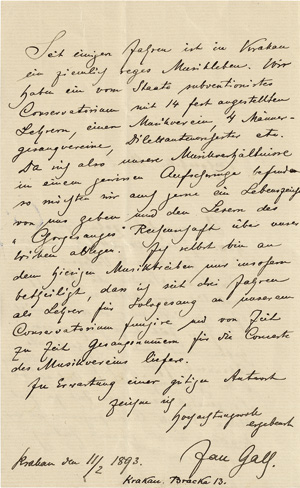 Seit einigen Jahren ist in Krakau
ein ziemlich reges Musikleben. Wir
haben ein vom Staate subventionirtes
Conservatorium mit 14 fest angestellten
Lehrern, einen Musikverein, 4 Männer-
gesangvereine, Dilettantenorchester etc.
Da sich also unsere Musikverhältnisse
in einem gewissen Aufschwunge befinden
so möchten wir auch gerne ein Lebenszeichen
von uns geben und den Lesern des
"Chorgesanges" Rechenschaft über unser
Wirken ablegen. Ich selbst bin an
dem hiesigen Musiktreiben nur insofern
betheiligt, dass ich seit drei Jahren
als Lehrer für Sologesang an unserem
Conservatorium fungire und von Zeit
zu Zeit Gesangsnummern für die Concerte
des Musikvereins liefere.
In Erwartung einer gütigen Antwort
zeichne ich
Hochachtungsvoll
ergebenst
Jan Gall.
Krakau den 11/2 1893.
Krakau. Bracka 13.